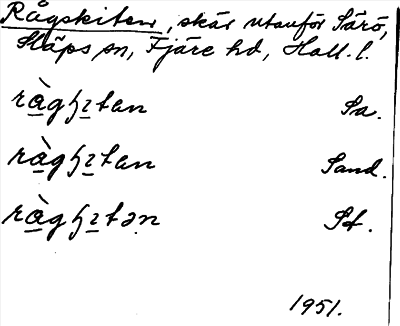 Rågskiten, skär utanför Särö,
Släps sn, Fjäre hd, Hall. l.
ràgʃɪtan Sa.
ràgʃɪtan Sand.
ràgʃɪtən St.
1951.